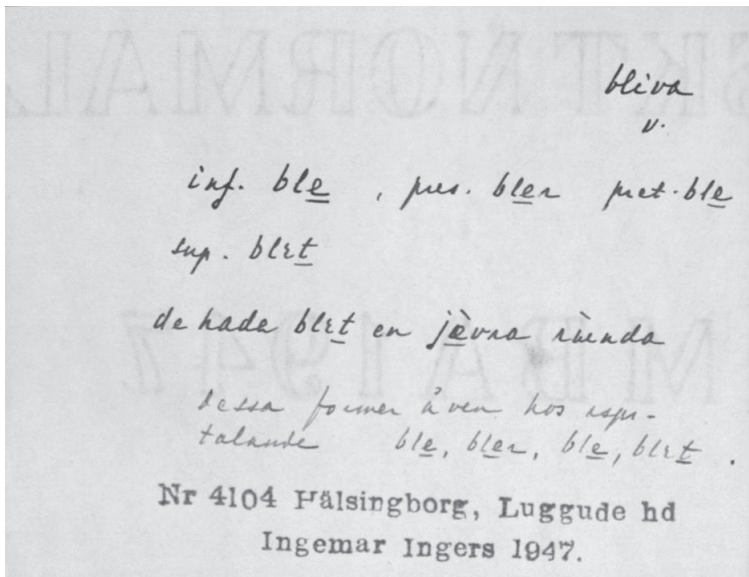 bliva
v.
inf. ble, pres. bler pret. ble
sup. blɛt
de hade blɛt en jèvra
dessa former även hos
talande ble, bler, ble, blɛt.
Nr 4104 Hälsingborg, Luggude hd
Ingemar Ingers 1947.